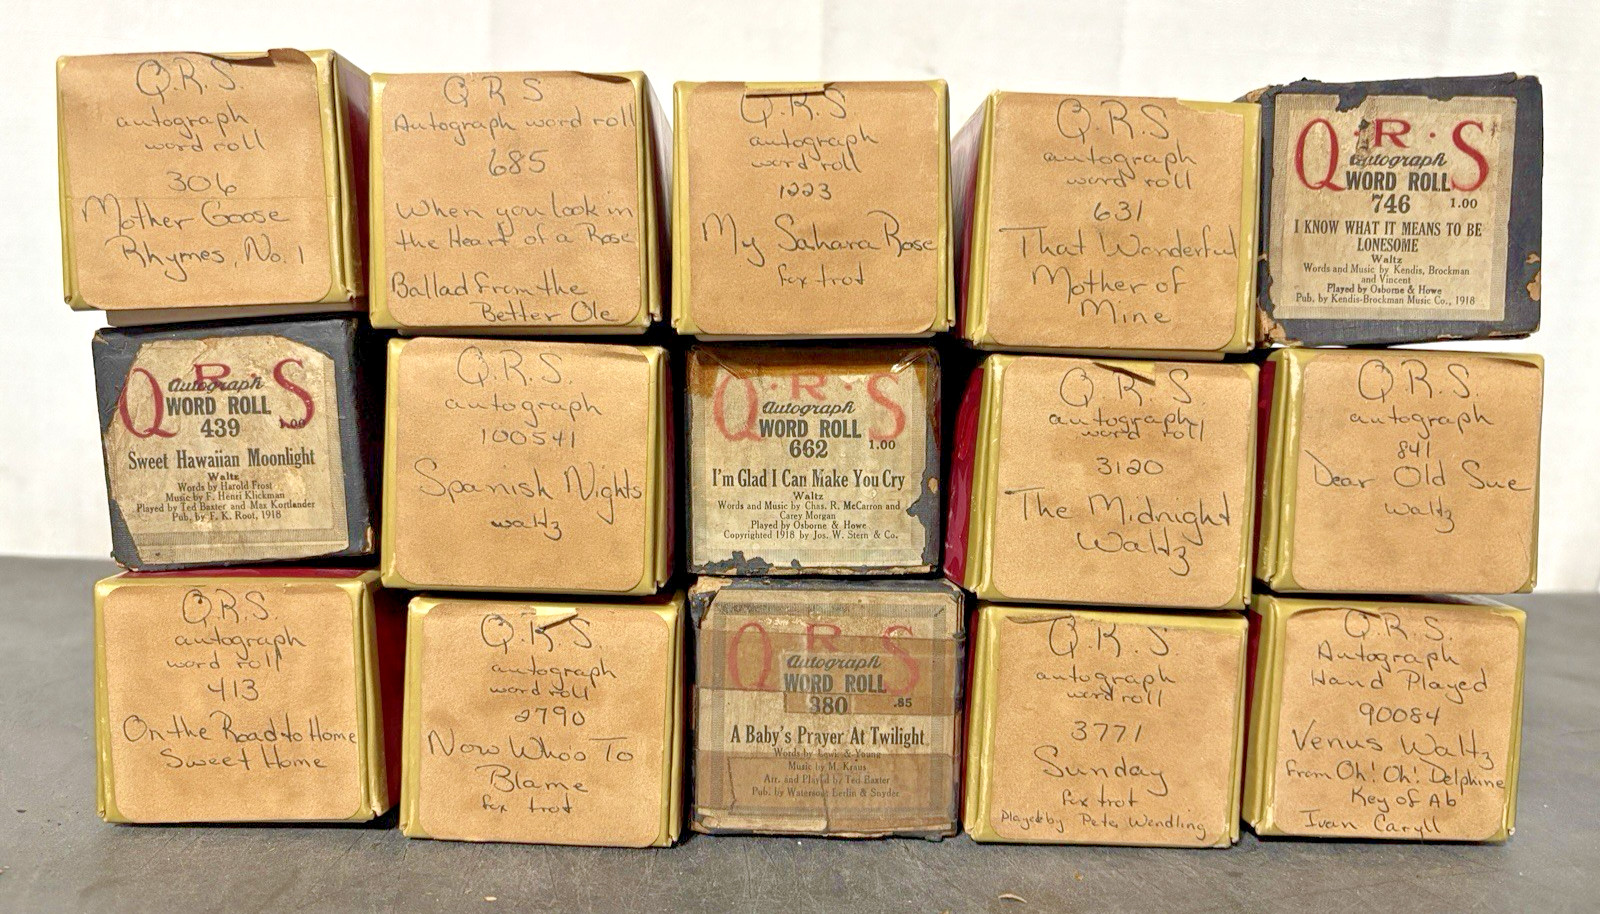 Q.R.S.
autograph
word roll
306
Mother Goose
Rhymes, No. 1
Q R S
Autograph word roll
685
When you look in
the Heart of a Rose
Ballad from the
Better Ole
Q.R.S
autograph
word roll
1223
My Sahara Rose
fox trot
Q.R.S
autograph
word roll
631
That Wonderful
Mother of
Mine
Q·R·S
Autograph
WORD ROLL
746 1.00
I KNOW WHAT IT MEANS TO BE
LONESOME
Waltz
Words and Music by Kendis, Brockman
and Vincent
Played by Osborne & Howe
Pub. by Kendis-Brockman Music Co., 1918
Q·R·S
Autograph
WORD ROLL
439 1.00
Sweet Hawaiian Moonlight
Waltz
Words by Harold Frost
Music by F. Henri Klickman
Played by Ted Baxter and Max Kortlander
Pub. by F. K. Root, 1918
Q.R.S.
autograph
100541
Spanish Nights
waltz
Q·R·S
Autograph
WORD ROLL
662 1.00
I'm Glad I Can Make You Cry
Waltz
Words and Music by Chas. R. McCarron and
Carey Morgan
Played by Osborne & Howe
Copyrighted 1918 by Jos. W. Stern & Co.
Q.R.S.
autograph
word roll
3120
The Midnight
Waltz
Q.R.S.
autograph
841
Dear Old Sue
waltz
Q.R.S.
autograph
word roll
413
On the Road to Home
Sweet Home
Q.R.S.
autograph
word roll
2790
Now Whoo To
Blame
fox trot
Q R S
Autograph
WORD ROLL
380 .85
A Baby's Prayer At Twilight
Words by Lewis & Young
Music by M.
Arr. and Played by Ted Baxter
Pub. by Waterson Berlin & Snyder
Q.R.S.
autograph
word roll
3771
Sunday
fox trot
Played by Pete Wendling
Q.R.S.
Autograph
Hand Played
90084
Venus Waltz
from Oh! Oh! Delphine
Key of Ab
Ivan Caryll